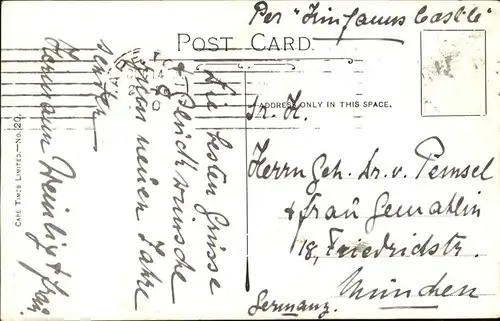 Per "Kinfauns Castle"
POST CARD.
ADDRESS ONLY IN THIS SPACE.
CAPE TIMES LIMITED.—No. 20.
Die besten Grüsse
& Glückwünsche
zum neuen Jahre
senden
Hermann & Frau.
Sr. H.
Herrn Geh. Dr. v. Pemsel
& Frau Gemahlin
18, Friedrichstr.
München
Germany.